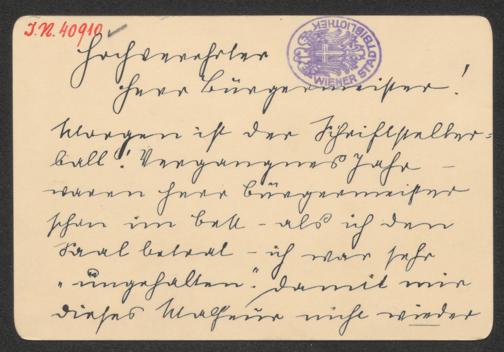 J.N. 40910
WIENER STADTBIBLIOTHEK
Hochverehrter
Herr Bürgermeister!
Morgen ist der Schriftsteller=
ball! Vergangnes Jahr –
waren Herr Bürgermeister
schon im Bett – als ich den
Saal betrat – ich war sehr
„ungehalten". Damit mir
dieses Malheur nicht wieder